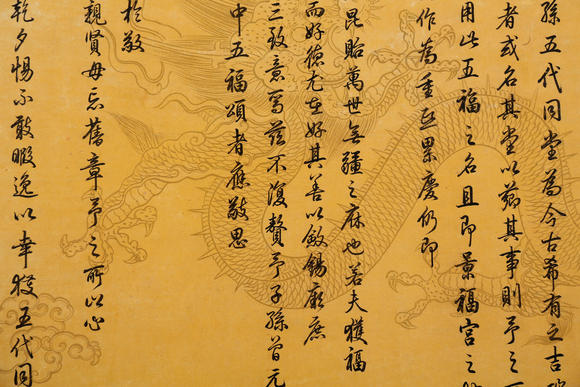 孫五代同堂為今古希有之吉
者或名其堂以其事則予之
用此五福之名且即景福宮之
作為重累慶仍即
昆貽萬世無疆之庥也若夫獲福
而好德尤在好其善以斂錫厥庶
三致意焉茲不復贅予子孫曾元
中五福頌者應敬思
於敬
親賢毋忘舊章予之所以心
乾夕惕不敢暇逸以幸獲五代同